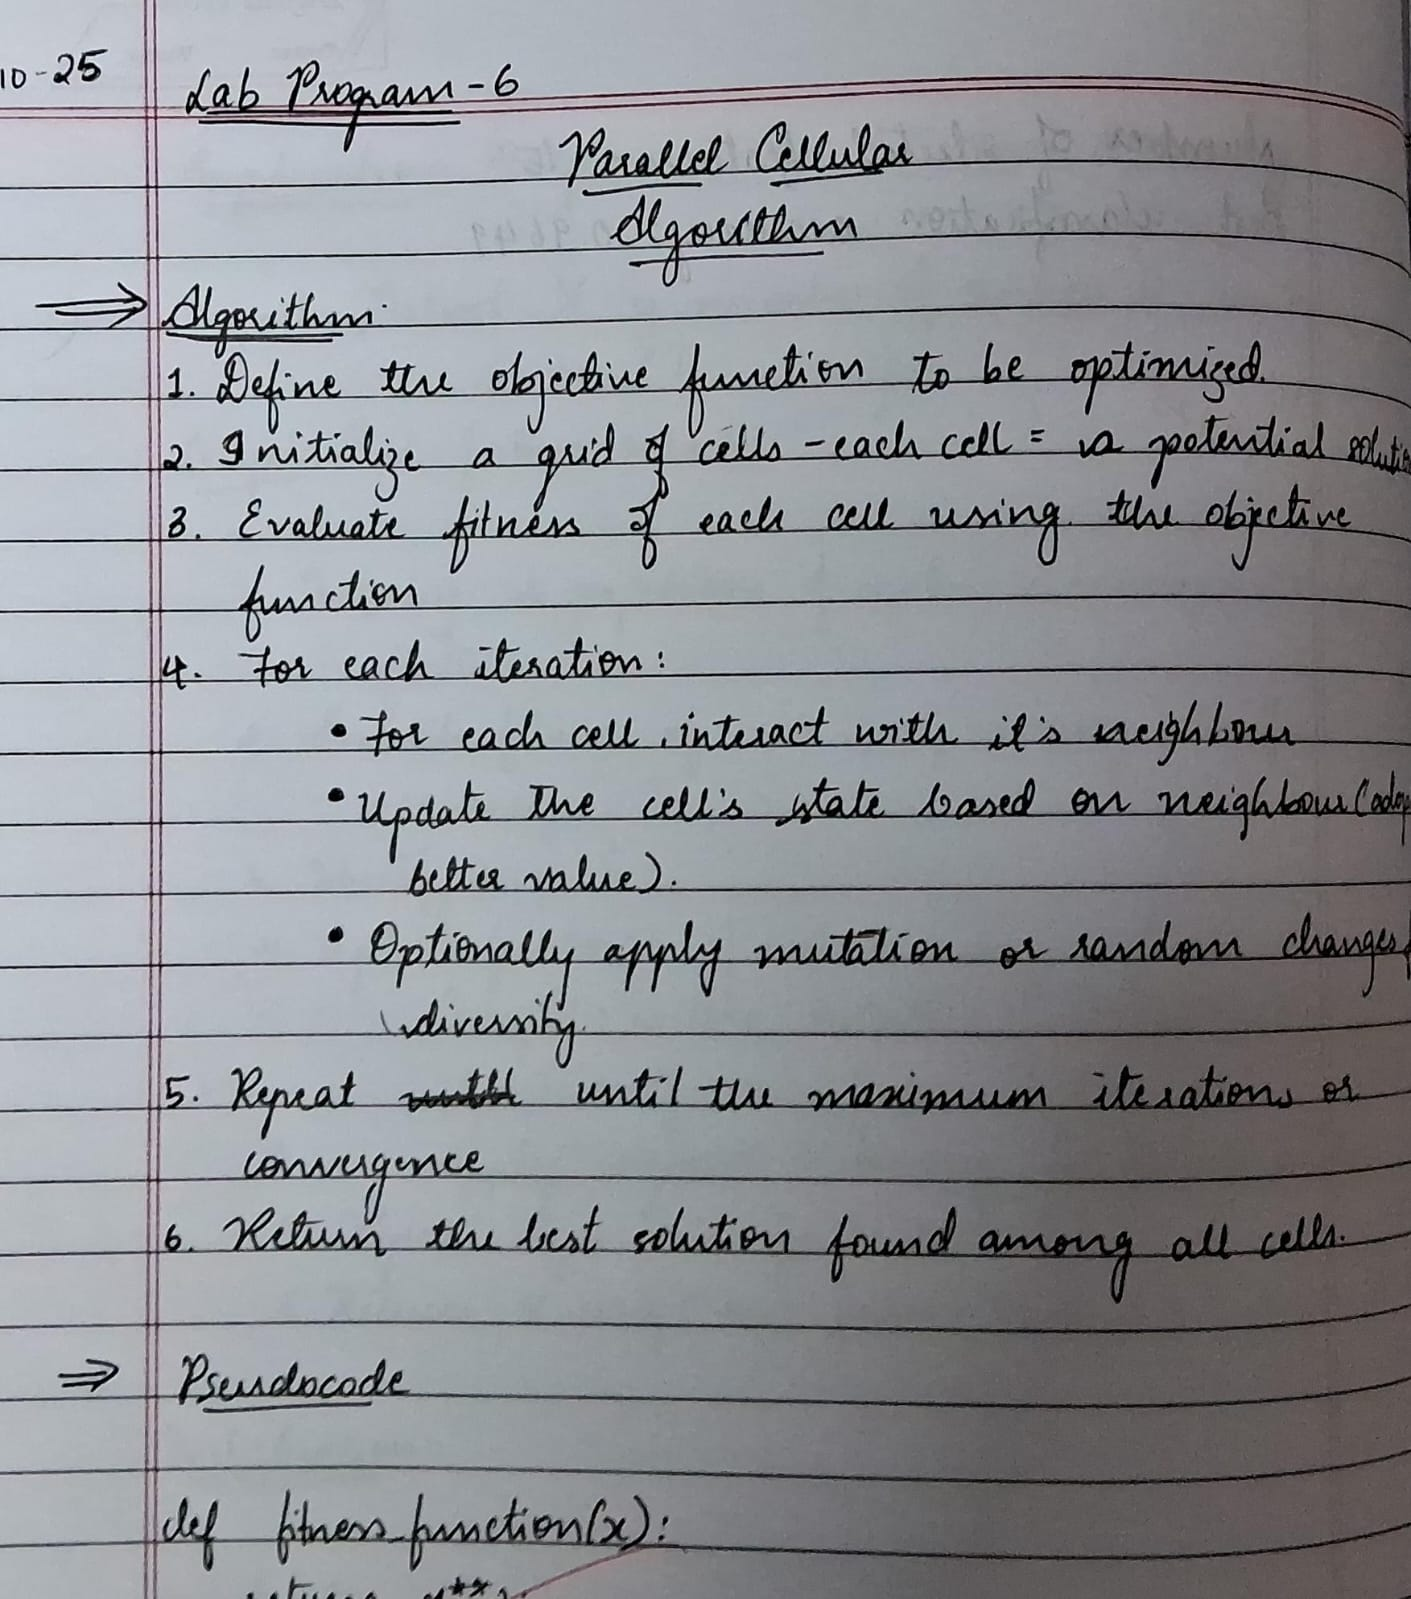 10-25
Lab Program-6
Parallel Cellular
Algorithm
⇒ Algorithm:
1. Define the objective function to be optimized.
2. Initialize a grid of cells - each cell = a potential
3. Evaluate fitness of each cell using the objective
function
4. For each iteration:
• For each cell, interact with it's neighbour
• Update the cell's state based on neighbour (
better value).
• Optionally apply mutation or random changes
diversity.
5. Repeat until the maximum iterations or
convergence
6. Return the best solution found among all cells.
⇒ Pseudocode
def fitness_function(x):